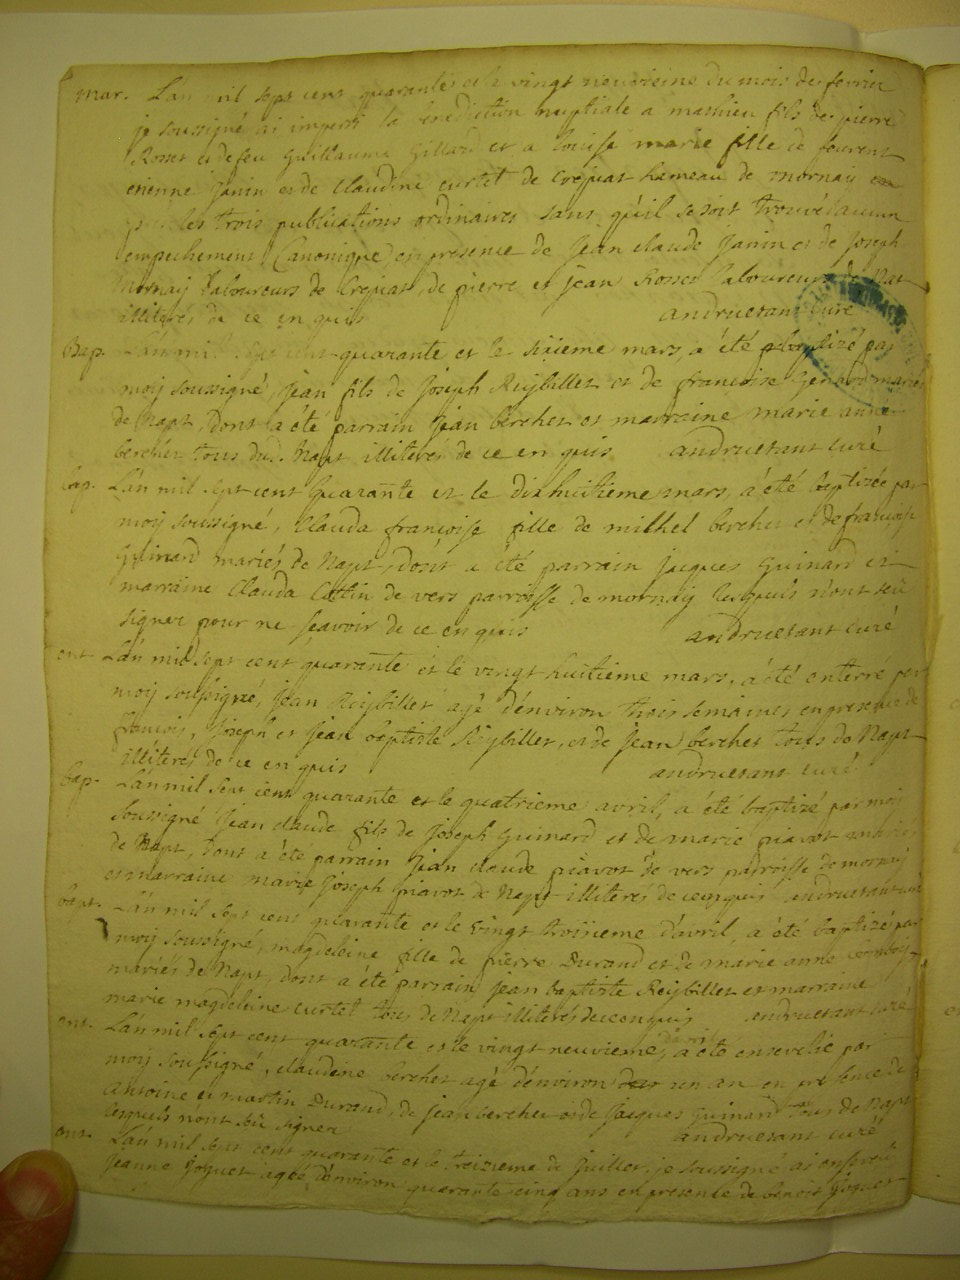 mar. L'an mil sept cent quarante et le vingt neuvieme du mois de fevrier
je soussigné ai imparti la benediction nuptiale a mathieu fils de pierre
Rosset et de feu Guillauma Gillard et a louise marie fille de feurent
etienne Janin et de Claudine curtet de Crepiat hameau de mornay
les trois publications ordinaires sans qu'il se soit trouvé aucun
empechement Canonique en presence de Jean claude Janin et de Joseph
mornay laboureurs de Crepiat, de pierre et jean Rosset laboureurs de Napt
illiterés de ce enquis andruetant curé
Bap. L'an mil sept cent quarante et le sixieme mars, a été baptizé par
moij soussigné, Jean fils de Joseph Reijbillet et de francoise Genard mariés
de Napt, Dont a été parrain Jean berchet et marraine marie anne
berchet tous dud. Napt illiterés de ce en quis andruetant curé
bap. L'an mil sept cent Quarante et le dixhuitieme mars, a été baptizée par
moij soussigné, Clauda françoise fille de milhel berchet et de françoise
Guinard mariés de Napt, dont a été parrain Jacques Guinard et
marraine Clauda Cottin de vers parroisse de mornay lesquels n'ont sçü
signer pour ne sçavoir de ce en quis andruetant curé
ent. L'an mil sept cent quarante et le vingt huitieme mars, a été enterré par
moij soussigné, Jean Reijbillet agé d'environ trois semaines en presence de
françois, Joseph et Jean baptiste Reijbillet, et de Jean berchet tous de Napt
illiterés de ce en quis andruetant curé
bap. L'an mil sept cent quarante et le quatrieme avril, a été baptizé par moij
soussigné Jean claude fils de Joseph Guinard et de marie piavot mariés
de Napt, Dont a été parrain Jean claude piavot de vers paroisse de mornay
et marraine marie Joseph piavot de Napt illiterés de ce enquis andruetant curé
bapt. L'an mil sept cent quarante et le vingt troisieme d'avril, a été baptizée par
moij soussigné, magdeleine fille de pierre Durand et de marie anne
mariés de Napt, Dont a été parrain Jean baptiste Reijbillet et marraine
marie magdeleine curtet tous de Napt illiterés de ce enquis andruetant curé
ent. L'an mil sept cent quarante et le vingt neuvieme d'avril, a été ensevelie par
moij soussigné, claudine berchet agé d'environ un an en presence de
antoine et martin Durand, de jean berchet et de Jacques Guinard tous de Napt
lesquels nont sçû signer andruetant curé
ent. L'an mil sept cent quarante et le treizieme de Juillet, je soussigné ai enseveli
Jeanne Joguet agée d'environ quarante cinq ans en presence de benoit